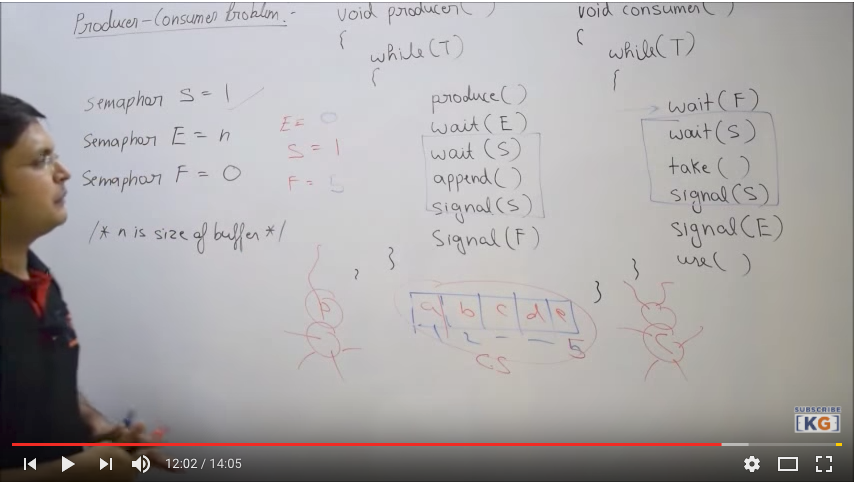 Producer-Consumer Problem :-
Semaphor S = 1
Semaphor E = n
Semaphor F = 0
/* n is size of buffer */
E = 0
S = 1
F = 5
void producer( )
{
while(T)
{
produce( )
wait(E)
wait(S)
append( )
signal(S)
Signal(F)
}
}
void consumer( )
{
while(T)
{
wait(F)
wait(S)
take( )
signal(S)
signal(E)
use( )
}
}
P
a b c d e
1 2 - - 5
CS
C
SUBSCRIBE
[KG]
12:02 / 14:05